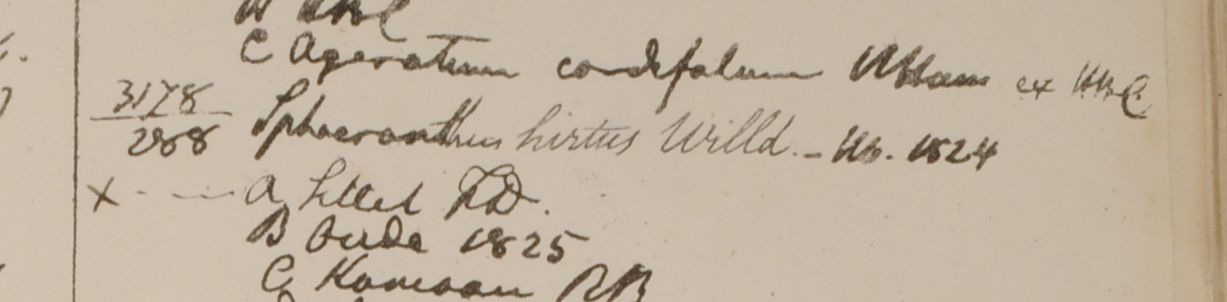 HBC
C Ageratum cordifolium Assam ex HBC
3178
288 Sphaeranthus hirtus Willd. - 1824
a Sillet FD.
B Oude 1825
C Kamaon RB